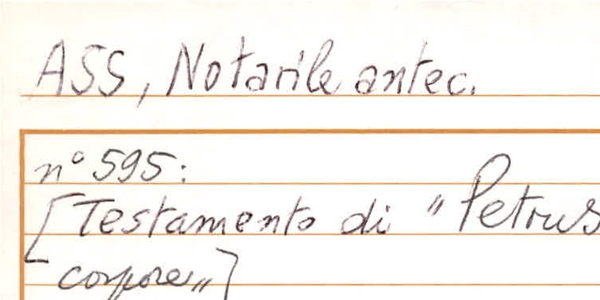 ASS, Notarile antec.
n° 595:
[Testamento di "Petrus
corpore"]